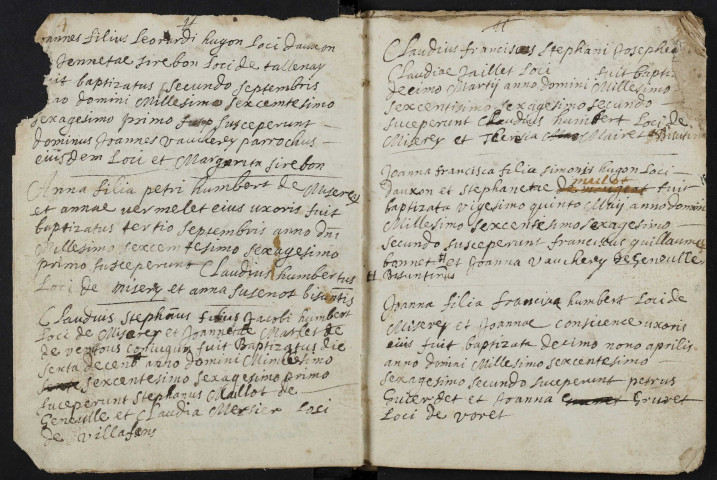 Joannes filius Leonardi hugon Loci dauxon
et Jennetae sirebon Loci de tallenay
fuit baptizatus secundo septembris
anno domini Millesimo sexcentesimo
sexagesimo primo susceperunt
dominus Joannes vauchery parrochus
eiusdem Loci et Margarita sirebon
Anna filia petri humbert de Miserey
et annae vermelet eius uxoris fuit
baptizatus tertio septembris anno dni
Millesimo sexcentesimo sexagesimo
primo susceperunt Claudius humbertus
Loci de Misery et anna susenot bisuntis
Claudius Stephanus filius Jacobi humbert
Loci de Miserey et Joannetae Maillet de
de ventous coniugum fuit Baptizatus die
sexta decemb anno domini Mimllesimo
sexcentesimo sexagesimo primo
susceperunt Stephanus Maillot de
Geneulle et Claudia Mersier Loci
de villafans
Claudius franciscus Stephani Josephe
Claudiae Jaillet Loci fuit bapti
decimo Martij anno domini Millesimo
sexcentisimo sexagesimo secundo
susceperunt Claudius humbert Loci de
Miserey et Theresia Mairet Bisuntin
Joanna francisca filia simonis hugon Loci
dauxon et Stephanetae maillot fuit
baptizata vigesimo quinto Maij anno domini
Millesimo sexcentesimo sexagesimo
secundo susceperunt franciscus quillaume
bannet # et Joanna vauchery de Geneulle
# Bisuntinus
Joanna filia francisca humbert Loci de
Miserey et Joannae uxoris
eius fuit baptizata decimo nono aprilis
anno domini Millesimo sexcentesimo
sexagesimo secundo suceperunt petrus
et Joanna Gruret
Loci de voret